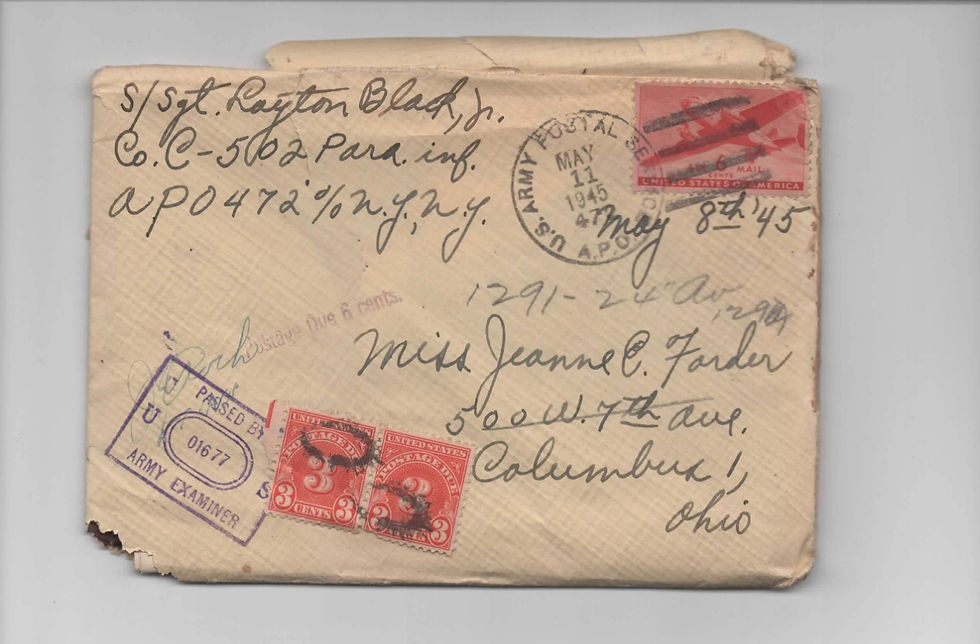 S/Sgt. Layton Black, Jr.
Co. C-502 Para. inf.
APO 472 c/o N.Y., N.Y.
U.S. ARMY POSTAL SER
MAY
11
1945
472
A.P.O.
6
CENTS
MAIL
UNITED STATES OF AMERICA
May 8th '45
Postage Due 6 cents.
1291-24" Av
Miss Jeanne C. Forder
500 W. 7th ave.
Columbus 1,
Ohio
PASSED BY
U S
01677
ARMY EXAMINER
UNITED STATES
POSTAGE DUE
3
3 CENTS
UNITED STATES
POSTAGE DUE
3
3 CENTS 3